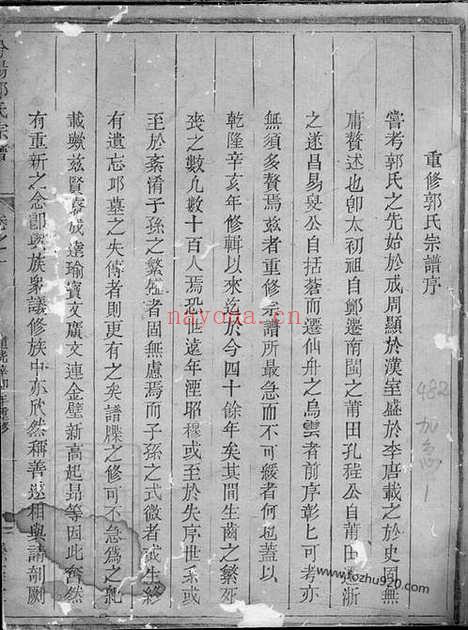 重修郭氏宗譜序
嘗考郭氏之先始於成周顯於漢室盛於李唐載之於史固無
庸贅述也卽太初祖自鄭遷南閩之莆田孔程公自莆田
浙
之遂昌易叟公自括蒼而遷仙舟之烏雲者前序彰匕可考亦
無須多贅焉茲者重修宗譜所最急而不可緩者何也蓋以
乾隆辛亥年修輯以來迄於今四十餘年矣其間生齒之繁死
喪之數凡數十百人焉恐世遠年湮昭穆或至於失序世系或
至於紊淆子孫之繁盛者固無慮焉而子孫之式微者或生終
有遺忘邱墓之失傳者則更有之矣譜牒之修可不急爲之
載歟茲賢
成達瑜寶文廣文連金壁新高起昻等因此奮然
有重新之念卽與族衆議修族中亦欣然稱善遂相與請剞劂
郭氏宗譜
卷之一
年重修
482
nayona.cn
www.fozhu920.com